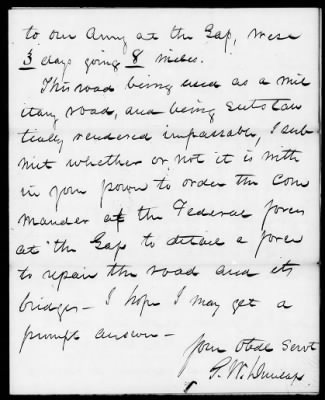 to our Army at the Gap, were
3 days going 8 miles.
This road being used as a mil
itary road, and being substan
tially rendered impassable, I sub
mit whether or not it is with
in your power to order the Com
mander of the Federal forces
at the Gap to detail a force
to repair the road and its
bridges — I hope I may get a
prompt answer —
Your Obdt Servt